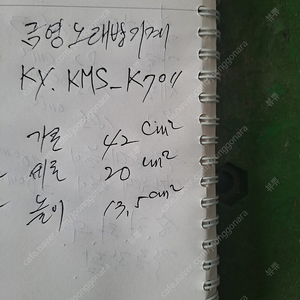 금영노래방기계
KY. KMS_K701
가로 42 Cm²
세로 20 cm²
높이 13,5 cm²